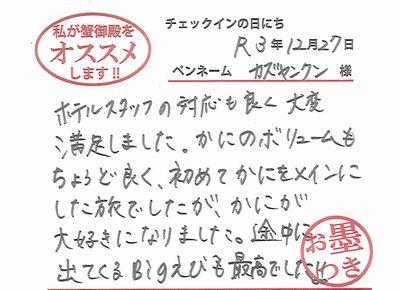 私が蟹御殿を
オススメ
します!!
チェックインの日にち
R3年12月27日
ペンネーム カズヤンクン 様
ホテルスタッフの対応も良く大変
満足しました。かにのボリュームも
ちょうど良く、初めてかにをメインに
した旅でしたが、かにが
大好きになりました。途中に
出てくるBigえびも最高でした!!
お墨
つき